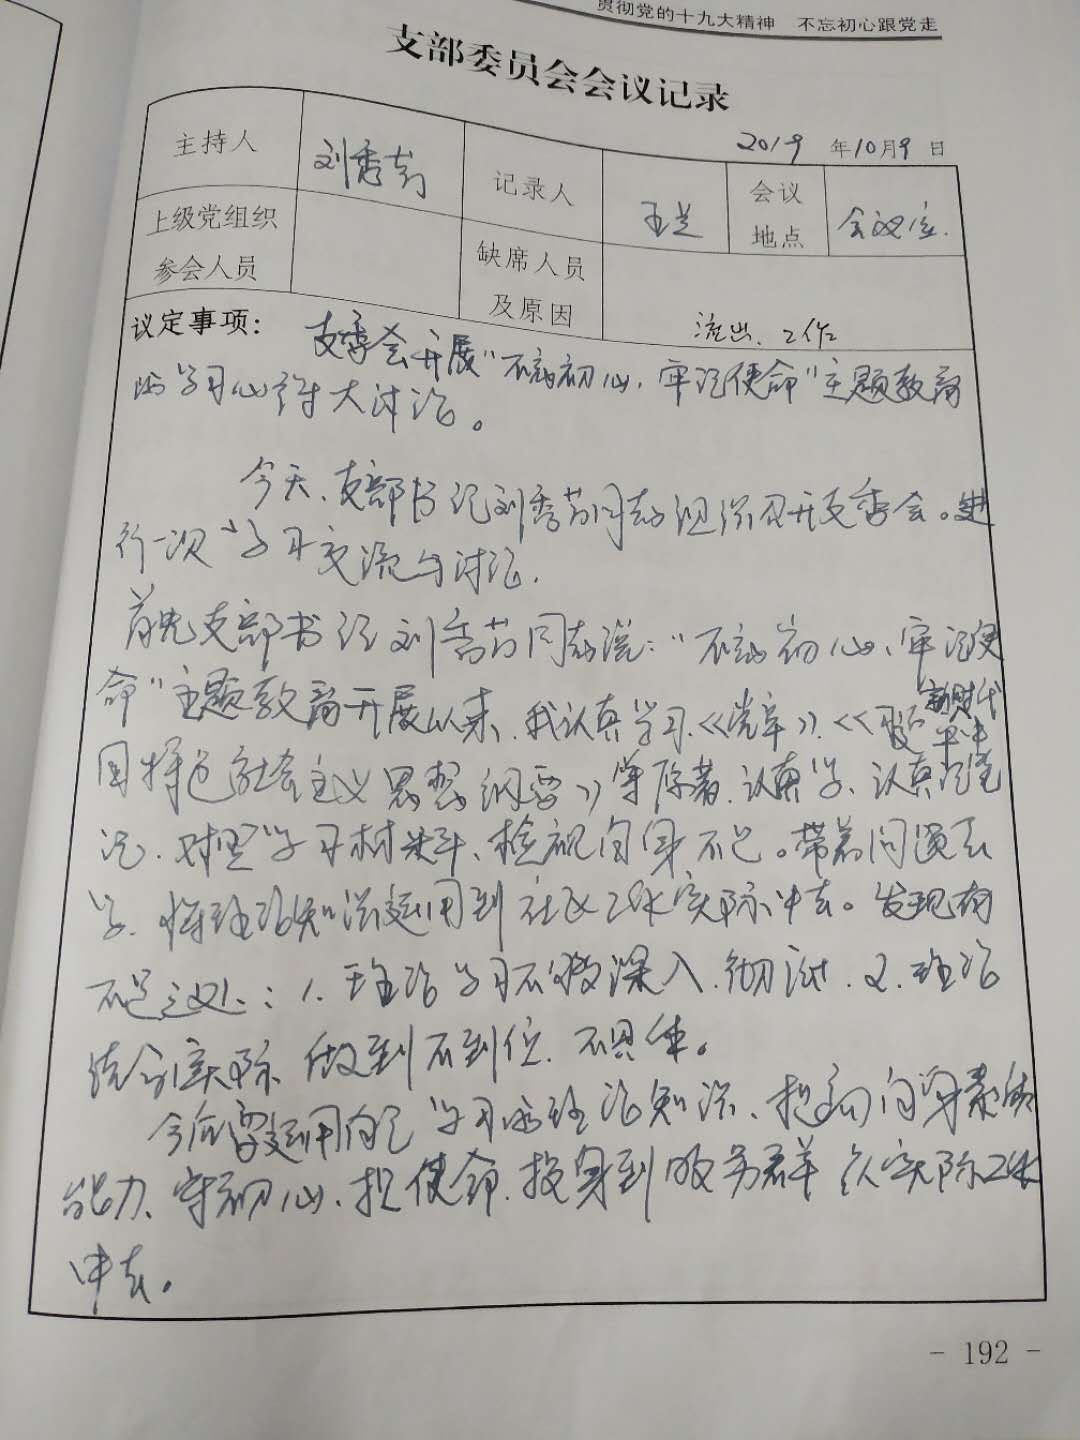 贯彻党的十九大精神 不忘初心跟党走
支部委员会会议记录
2019 年10月9日
主持人 刘秀 记录人 王兰 会议地点 会议室.
上级党组织参会人员 缺席人员及原因 流出、工作
议定事项: 支委会开展"不忘初心、牢记使命"主题教育
的学习心得大讨论。
今天、支部书记刘秀同志组织召开支委会。进
行一次学习交流与讨论.
首先支部书记刘秀同志说:"不忘初心、牢记使
命"主题教育开展以来、我认真学习《党章》、《新时代中
国特色社会主义思想纲要》等原著、认真学、认真记笔
记、对照学习材料、检视自身不足。带着问题去
学、将理论知识运用到社区工作实际中去。发现有
不足之处:1.理论学习不够深入、彻底.2.理论
结合实际做到不到位、不具体。
今后要运用自己学习的理论知识、提高自身素质
能力、守初心、担使命、投身到服务群众实际工作
中去。
- 192 -